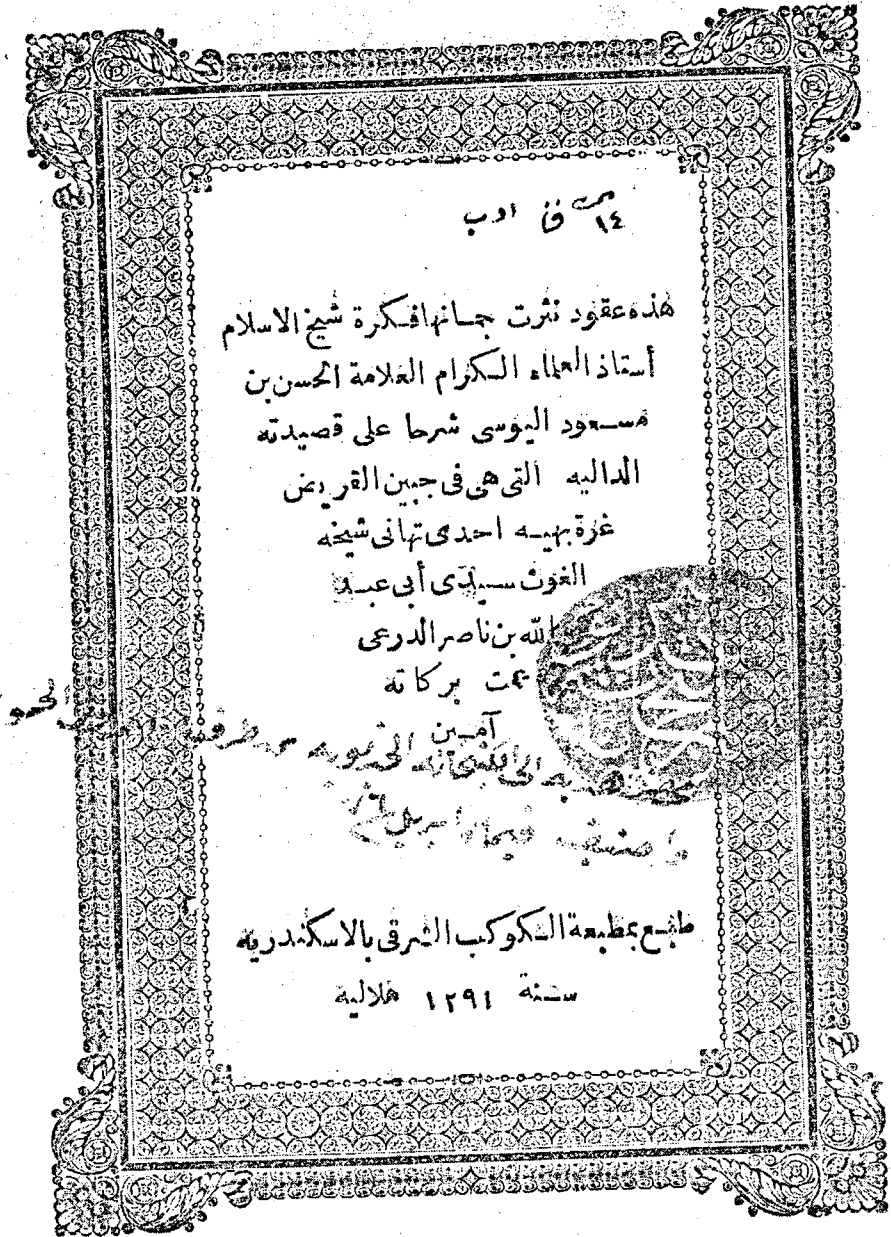 ١٤ ق ادب
هذه عقود نثرت جمانها فكرة شيخ الاسلام
أستاذ العلماء الكرام العلامة الحسن بن
مسعود اليوسى شرحا على قصيدته
الداليه التى هى فى جبين القريض
غرة بهيه احدى تهانى شيخه
الغوث سيدى أبى عبد
الله بن ناصر الدرعى
عمت بركاته
آمين
طبع بمطبعة الكوكب الشرقى بالاسكندريه
سنة ١٢٩١ هلالية